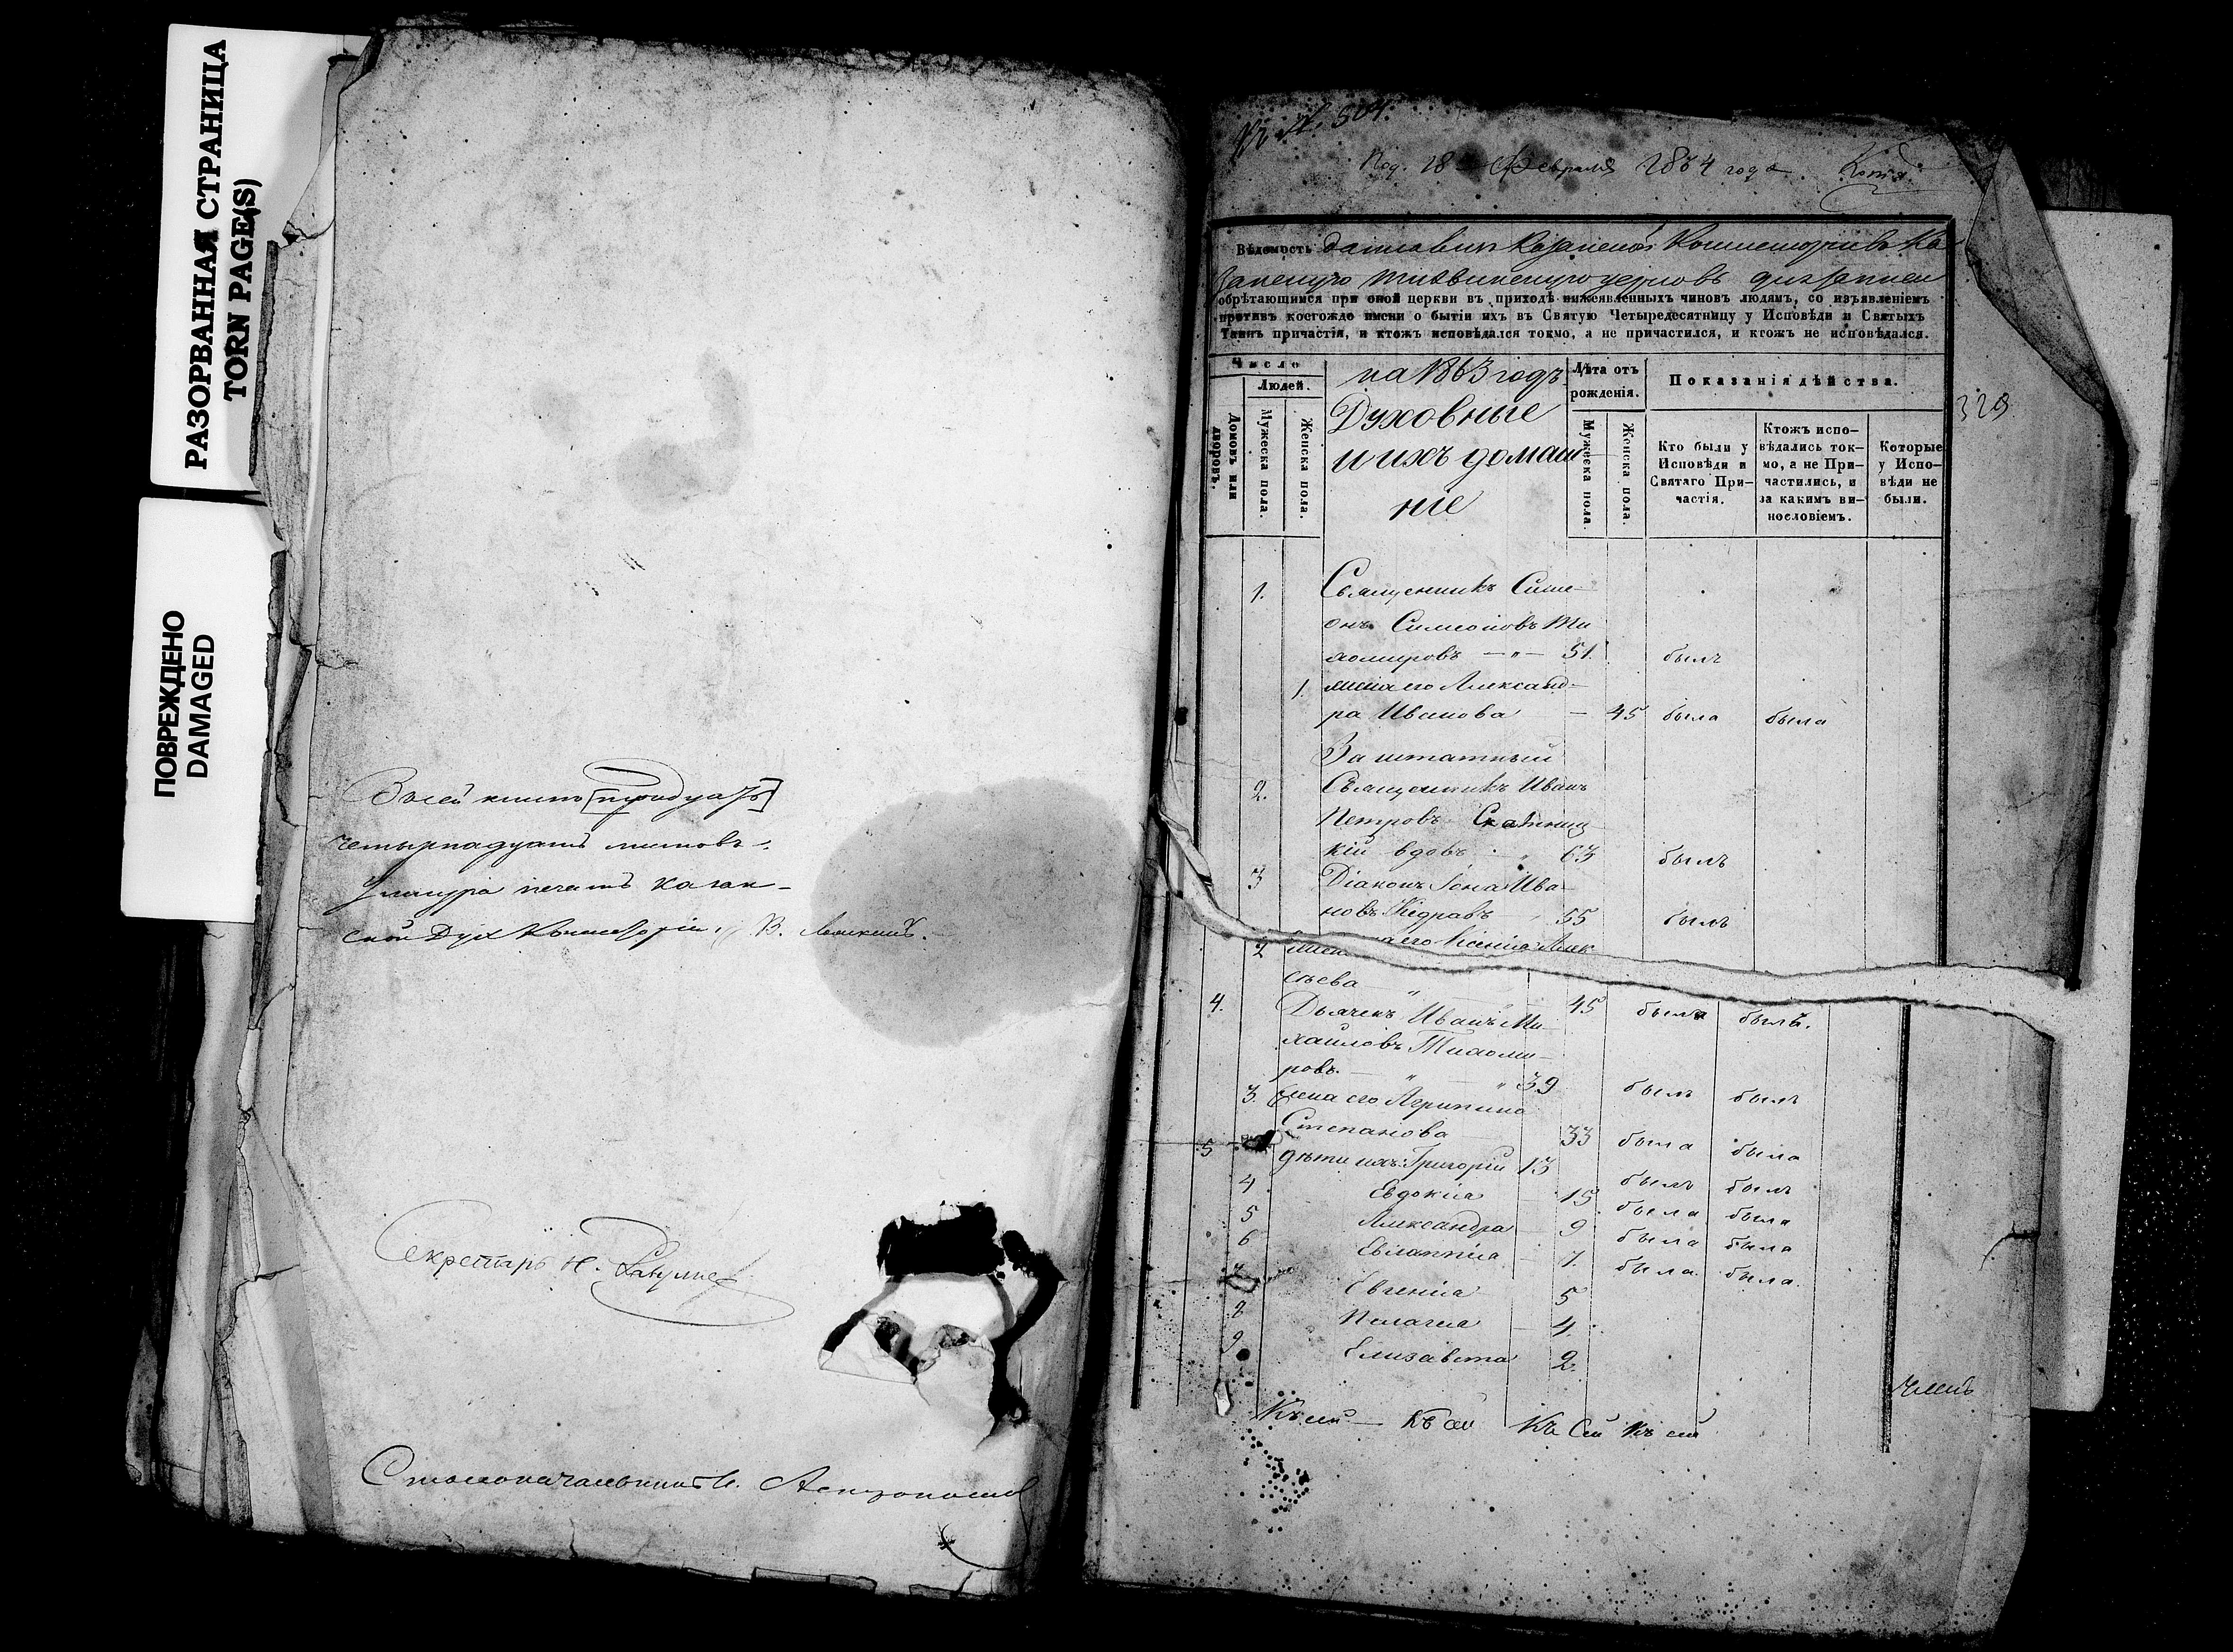 РАЗОРВАННАЯ СТРАНИЦА
TORN PAGE(S)
ПОВРЕЖДЕНО
DAMAGED
В сей книге
четырнадцать листовъ.
печать Казан-
ской Дух Консисторіи. В.
Секретарь Н.
Столоначальникъ И.
№ 504.
Под. 18 Февраля 1864 года. Копія
Вѣдомость данная изъ Казанской Консисторіи въ Ка-
занскую Тихвинскую церковь для записки
обрѣтающимся при оной церкви въ приходѣ нижеявленныхъ чиновъ людямъ, со изъявленіемъ
противъ коегождо имени о бытіи ихъ въ Святую Четыредесятницу у Исповѣди и Святыхъ
Таинъ причастія, и ктожъ исповѣдался токмо, а не причастился, и ктожъ не исповѣдался.
329
Число
Домовъ или дворовъ.
Людей.
Мужеска пола.
Женска пола.
на 1863 годъ
Духовные
и ихъ домаш-
ніе
Лѣта отъ
рожденія.
Мужеска пола.
Женска пола.
Показанія дѣйства.
Кто были у
Исповѣди и
Святаго При-
частія.
Ктожъ испо-
вѣдались ток-
мо, а не При-
частились, и
за какимъ ви-
нословіемъ.
Которые
у Испо-
вѣди не
были.
1. Священникъ Симе-
онъ Симеоновъ Ти
хомировъ — " — 51. былъ
1. жена его Александ-
ра Иванова — 45 была была
Заштатный
2. Священникъ Иванъ
Петровъ
кій вдовъ " 63 былъ
3 Діаконъ Іона Ива-
новъ Кедровъ 55 былъ
2 жена его Ксенія Алек
сѣева " 45 была была.
4. Дьячекъ Иванъ Ми-
хайловъ Тихоми-
ровъ. — " — " 39 былъ былъ
3. Жена его Агрипина
Степанова 33 была была
5 дѣти ихъ: Григорій 13 былъ былъ
4 Евдокія — 15 была была
5 Александра — 9 была была
6 Евлампія — 7. была. была.
Евгенія 5
Пелагея — 4.
9 Елизавета 2.
Къ сей — Къ сей Къ сей Къ сей